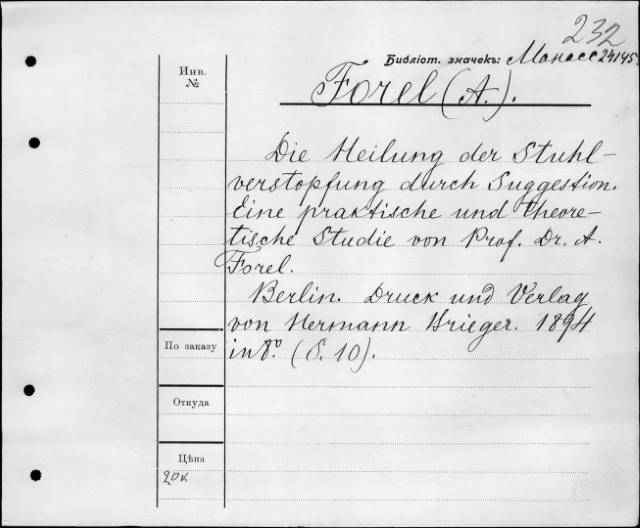 232
Библіот. значекъ: Манасс 24145
Инв.
№
Forel (A.).
Die Heilung der Stuhl-
verstopfung durch Suggestion.
Eine praktische und theore-
tische Studie von Prof. Dr. A.
Forel.
Berlin. Druck und Verlag
von Hermann Krieger. 1894
in 8º. (S. 10).
По заказу
Откуда
Цѣна
20к